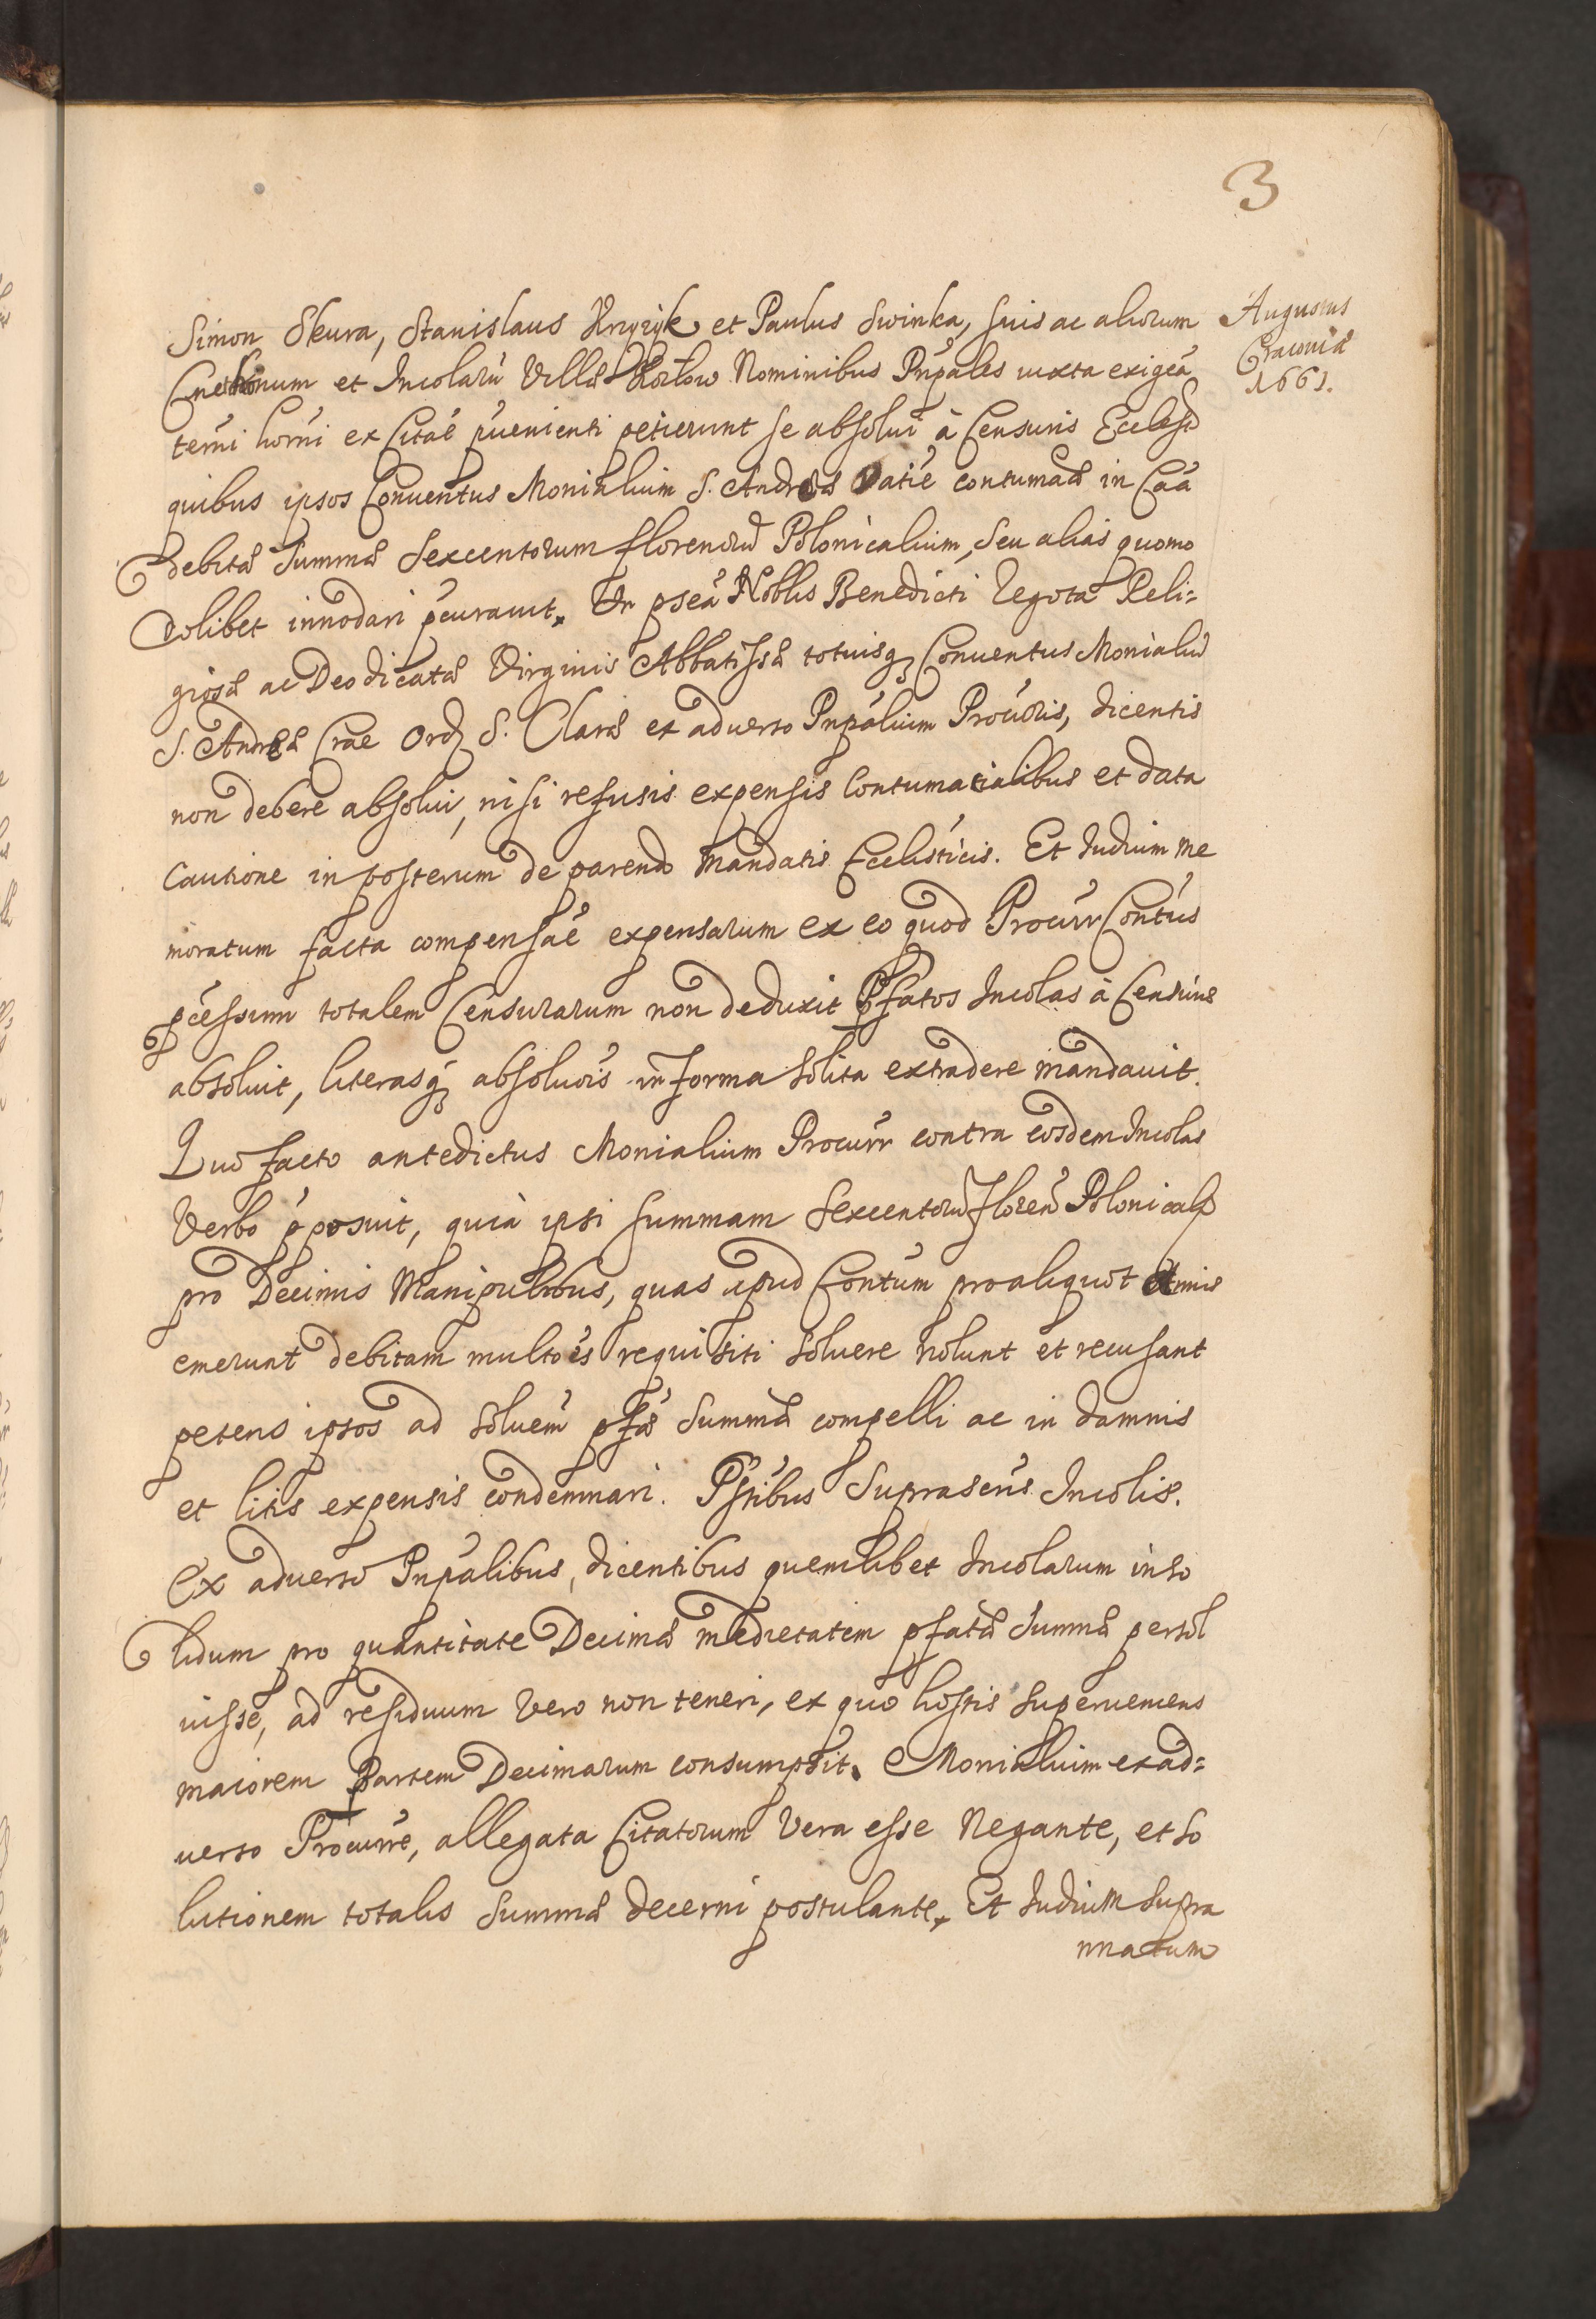 3
Augustus
Cracouiæ
1661.
Simon Skura, Stanislaus Krzyżyk et Paulus Swinka, suis ac aliorum
Cmethonum et Incolarũ Villæ Kozłow Nominibus Pñpales iuxta exigeã
termi horni ex Citaẽ puenienti petierunt se absolui à Censuris Eccles
quibus ipsos Conuentus Monialium S. Andreæ Ratiẽ contumaæ in Caã
debitæ Summæ Sexcentorum florenorũ Polonicalium, seu alias quomo
dolibet innodari pcurauit. Vn pseã Noblis Benedicti Legota Reli:
giosæ ac Deo dicatæ Virginis Abbatissæ totiusq Conuentus Monialiũ
S. Andreæ Crae Ord S. Claræ ex aduerso Pnpalium Procuris, dicentis
non debere absolui, nisi refusis expensis Contumatialibus et data
Cautione in posterum de parendo Mandatis Ecclisticis. Et Iudium me
moratum facta compensaẽ expensarum ex eo quod Procurr Contus
pcessum totalem Censurarum non deduxit Pfatos Incolas à Censuris
absoluit, literasq absoluois in forma solita extradere mandauit.
Quo facto antedictus Monialium Procurr contra eosdem Incolas
Verbo pposuit, quià ipsi summam Sexcentorũ floren Polonical
pro Decimis Manipulibus, quas apud Contum pro aliquot Annis
emerunt debitam multoẽs requisiti soluere nolunt et recusant
petens ipsos ad soluem pfã Summæ compelli ac in damnis
et litis expensis condemnari. Pñtibus Suprascris Incolis.
Ex aduerso Pnpalibus, dicentibus quemlibet Incolarum in so
lidum pro quantitate Decimæ medietatem pfatæ Summæ persol
uisse, ad residuum Vero non teneri, ex quo hostis superueniens
maiorem partem Decimarum consumpsit. Monialium ex ad:
uerso Procurre, allegata Citatorum Vera esse Negante, et so
lutionem totalis Summæ decerni postulante. Et Iudium supra
nnatum